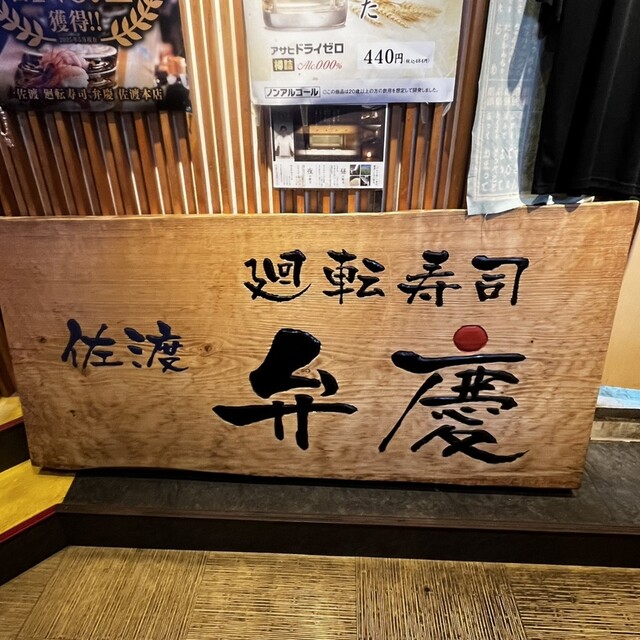 獲得!!
佐渡 廻転寿司 弁慶 佐渡本店
た
アサヒドライゼロ
樽詰 Alc.0.00%
440円
ノンアルコール
廻転寿司
佐渡 弁慶